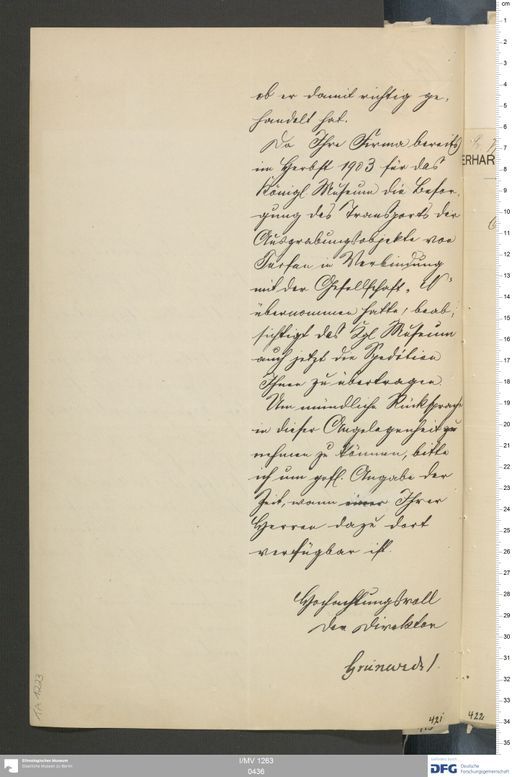 ob er damit richtig ge-
handelt hat.
Da Ihre Firma bereits
im Herbst 1903 für das
Königl Museum die Besor-
gung des Transports der
Ausgrabungsobjekte von
Turfan in Verbindung
mit der Gesellschaft
übernommen hatte, beab-
sichtigt das Kgl Museum
auch jetzt die Spedition
Ihnen zu übertragen.
Um mündliche Rücksprache
in dieser Angelegenheit zu
nehmen zu können, bitte
ich um gefl. Angabe der
Zeit, wann einer Ihrer
Herren dazu dort
verfügbar ist.
Hochachtungsvoll
Der Direktor
Grünwedel.
ERHAR
421
422
I/MV 1263
0436
Ethnologisches Museum
Staatliche Museen zu Berlin
DFG Deutsche
Forschungsgemeinschaft